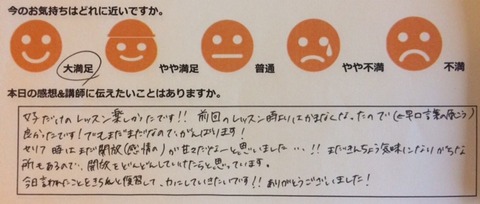 今のお気持ちはどれに近いですか。
大満足 やや満足 普通 やや不満 不満
本日の感想&講師に伝えたいことはありますか。
女子だけのレッスン楽しかったです!! 前回のレッスン時よりはかまなくなったので(←早口言葉の
良かったです!でもまだまだなのでがんばります!
セリフ時はまだ開放(感情の)が甘えだなーと思いました…!! まだきんちょう気味になりがちな
所もあるので、開放をどんどんしていけたらと思っています。
今日言われたことをきちんと復習して、力にしていきたいです!! ありがとうございました!